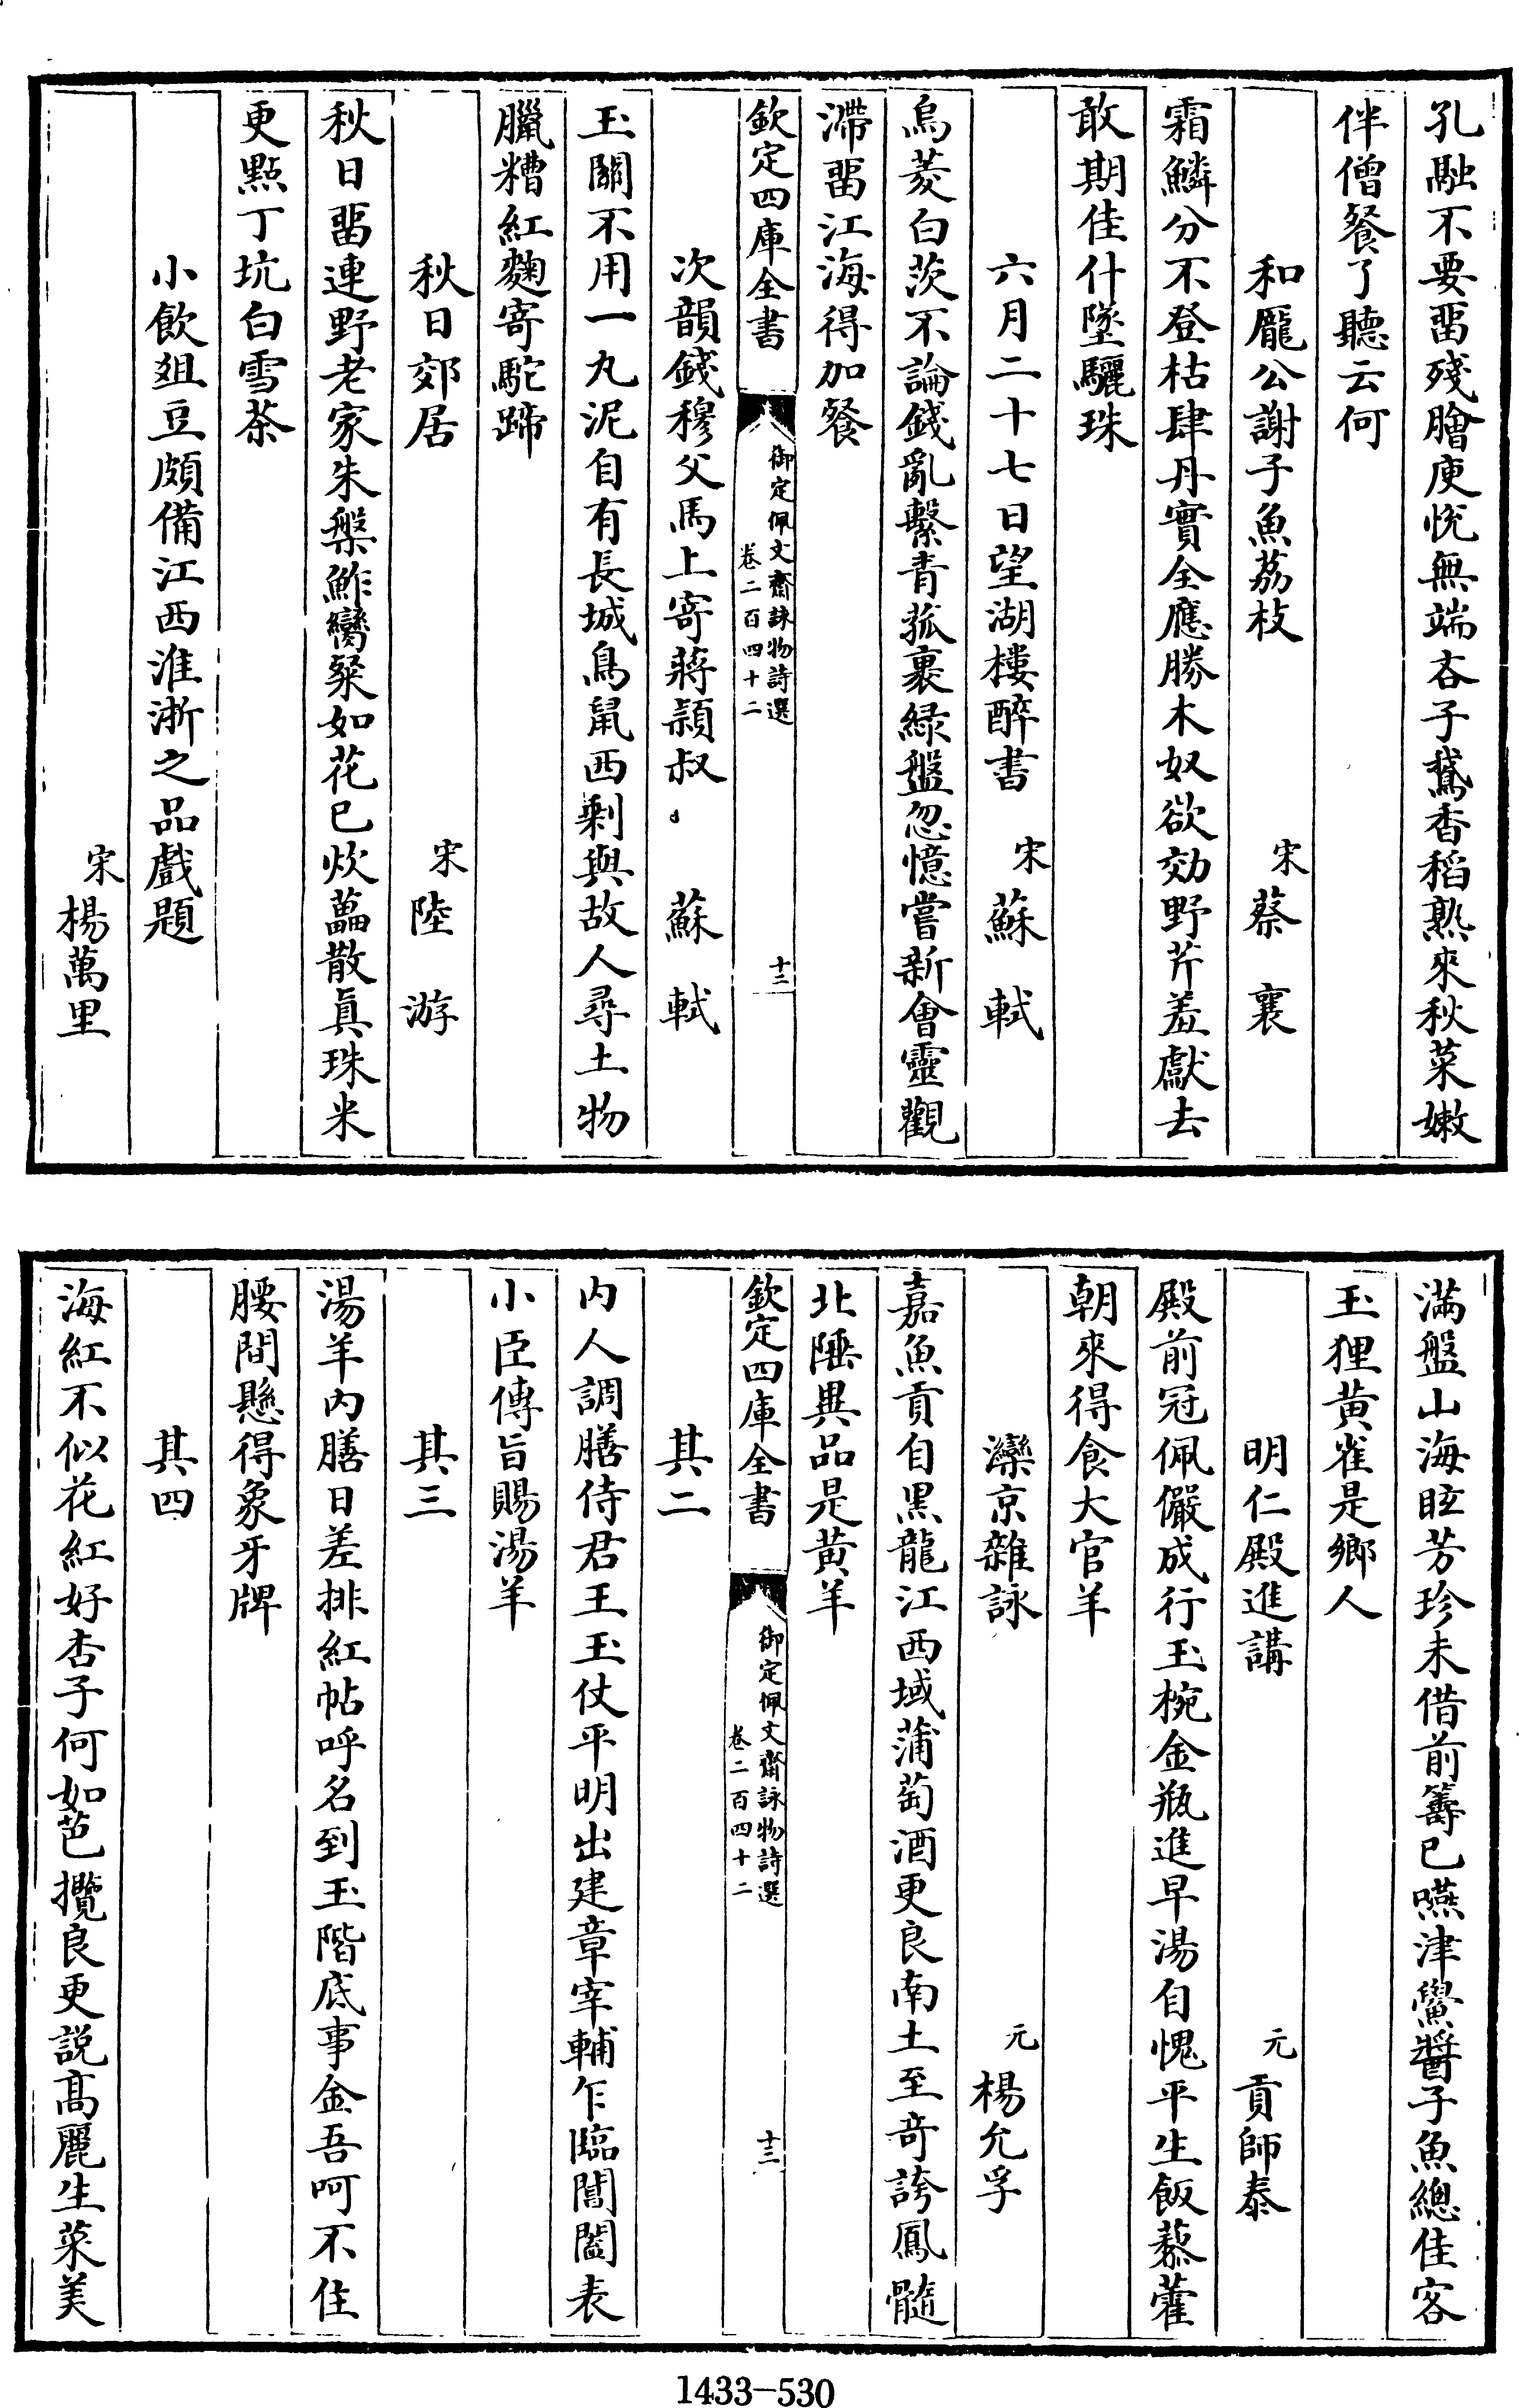 孔融不要畱殘膾庾悦無端吝子鵞香稻熟來秋菜嫩
伴僧餐了聽云何
和龎公謝子魚荔枝 宋 蔡襄
霜鱗分不登枯肆丹實全應勝木奴欲効野芹羞獻去
敢期佳什墜驪珠
六月二十七日望湖樓醉書 宋 蘇軾
烏菱白茨不論錢亂繫青菰裹緑盤忽憶嘗新會靈觀
滯畱江海得加餐
欽定四庫全書 御定佩文齋詠物詩選 卷二百四十二 十三
次韻錢穆父馬上寄蔣頴叔 蘇軾
玉關不用一丸泥自有長城鳥鼠西剩與故人尋土物
臘糟紅麴寄駝蹄
秋日郊居 宋 陸游
秋日畱連野老家朱槃鮓臠粲如花已炊虀散眞珠米
更點丁坑白雪茶
小飲俎豆頗備江西淮浙之品戲題
宋 楊萬里
滿盤山海眩芳珍未借前籌已嚥津鱟醬子魚總佳客
玉狸黄雀是鄉人
明仁殿進講 元 貢師泰
殿前冠佩儼成行玉椀金瓶進早湯自愧平生飯藜藿
朝來得食大官羊
灤京雜詠 元 楊允孚
嘉魚貢自黒龍江西域蒲萄酒更良南土至竒誇鳳髓
北陲異品是黄羊
欽定四庫全書 御定佩文齋詠物詩選 卷二百四十二 十三
其二
内人調膳侍君王玉仗平明出建章宰輔乍臨閶闔表
小臣傳旨賜湯羊
其三
湯羊内膳日差排紅帖呼名到玉階底事金吾呵不住
腰間懸得象牙牌
其四
海紅不似花紅好杏子何如芭攬良更説髙麗生菜美
1433-530